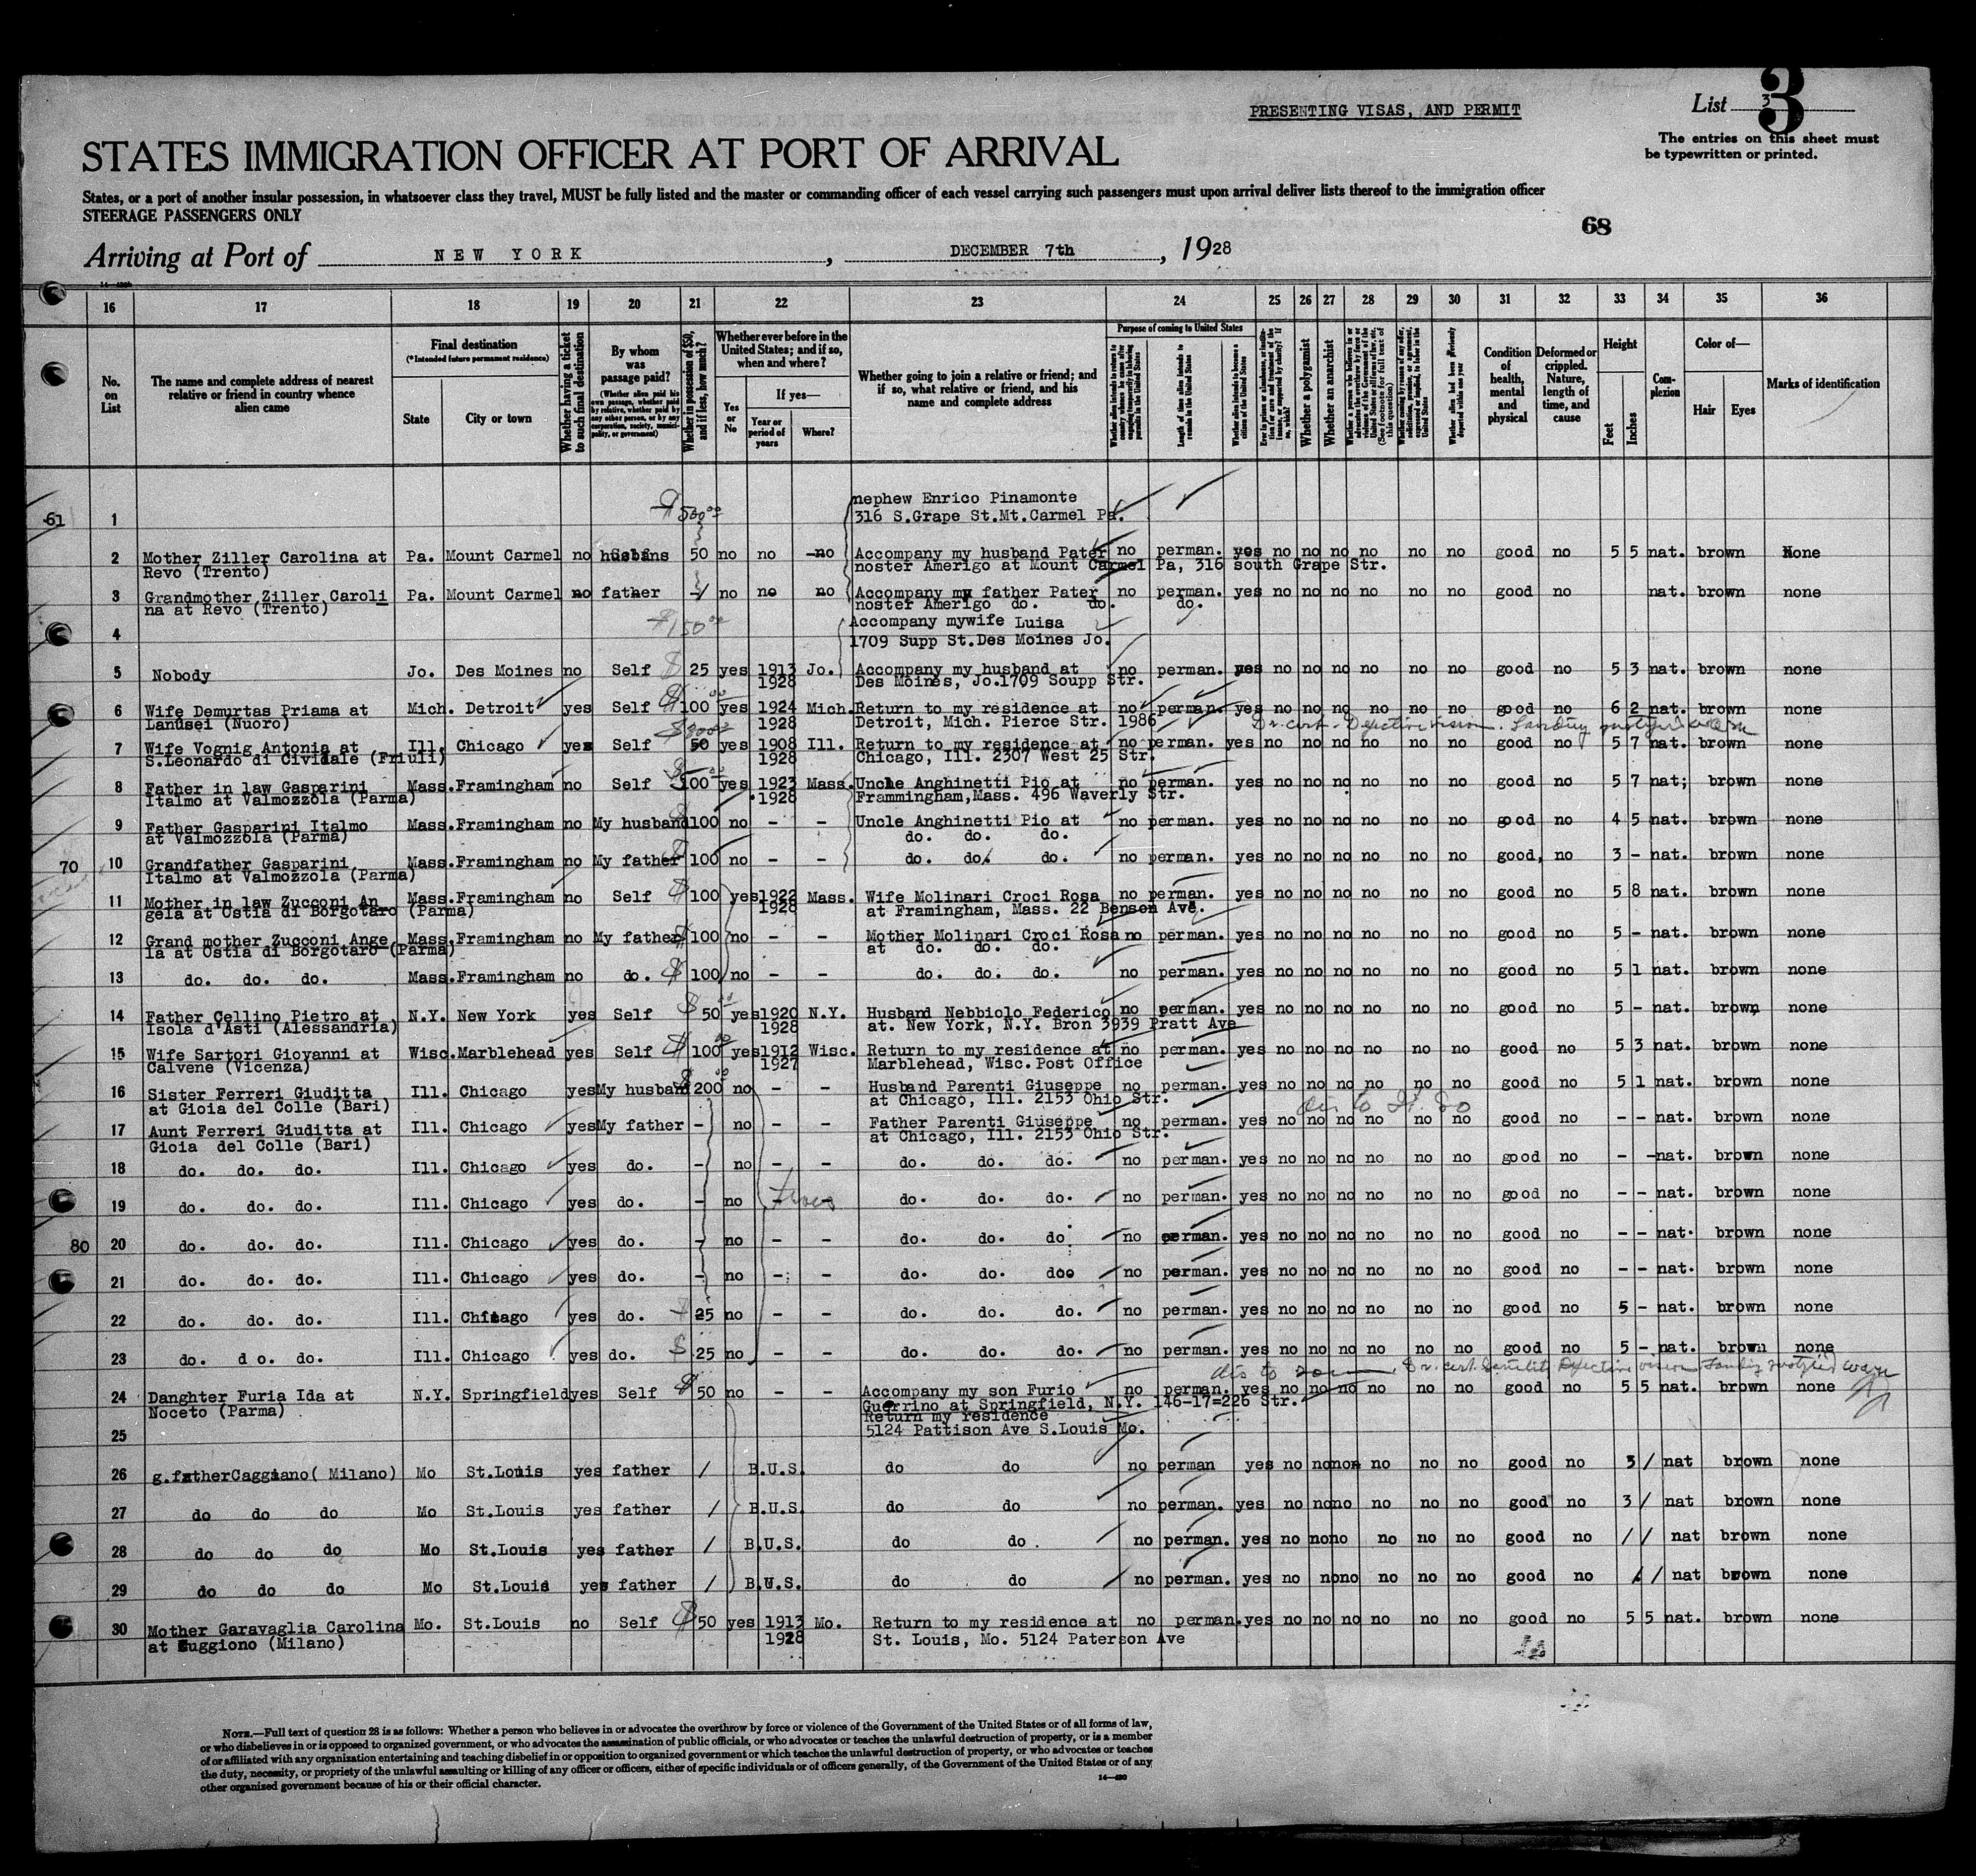 PRESENTING VISAS, AND PERMIT
List 3 3
The entries on this sheet must
be typewritten or printed.
STATES IMMIGRATION OFFICER AT PORT OF ARRIVAL
States, or a port of another insular possession, in whatsoever class they travel, MUST be fully listed and the master or commanding officer of each vessel carrying such passengers must upon arrival deliver lists thereof to the immigration officer
STEERAGE PASSENGERS ONLY
68
Arriving at Port of NEW YORK, DECEMBER 7th, 1928
16 17 18 19 20 21 22 23 24 25 26 27 28 29 30 31 32 33 34 35 36
No. on List
The name and complete address of nearest relative or friend in country whence alien came
Final destination
(*Intended future permanent residence)
State
City or town
Whether having a ticket to such final destination
By whom was passage paid?
(Whether alien paid his own passage, whether paid by relative, whether paid by any other person, or by any corporation, society, municipality, or government)
Whether in possession of $50, and if less, how much?
Whether ever before in the United States; and if so, when and where?
Yes or No
If yes—
Year or period of years
Where?
Whether going to join a relative or friend; and if so, what relative or friend, and his name and complete address
Purpose of coming to United States
Length of time alien intends to remain in the United States
Whether alien intends to become a citizen of the United States
Whether a polygamist
Whether an anarchist
Whether alien had been previously deported within one year
Condition of health, mental and physical
Deformed or crippled. Nature, length of time, and cause
Height
Feet
Inches
Complexion
Color of—
Hair
Eyes
Marks of identification
61 1 $500 00 nephew Enrico Pinamonte
316 S.Grape St.Mt.Carmel Pa.
2 Mother Ziller Carolina at Pa. Mount Carmel no 50 no no no Accompany my husband Pater no perman. yes no no no no no no good no 5 5 nat. brown None
Revo (Trento) noster Amerigo at Mount Carmel Pa, 316 south Grape Str.
3 Grandmother Ziller Caroli Pa. Mount Carmel no father no no no Accompany my father Pater no perman. yes no no no no no no good no nat. brown none
na at Revo (Trento) noster Amerigo do. do. do.
4 $150 00 Accompany mywife Luisa
1709 Supp St.Des Moines Jo.
5 Nobody Jo. Des Moines no Self $ 25 yes 1913 Jo. Accompany my husband at no perman. yes no no no no no no good no 5 3 nat. brown none
1928 Des Moines, Jo.1709 Soupp Str.
6 Wife Demurtas Priama at Mich. Detroit yes Self $ 100 yes 1924 Mich. Return to my residence at no perman. yes no no no no no no good no 6 2 nat. brown none
Lanusei (Nuoro) 1928 Detroit, Mich. Pierce Str. 1986
Dr. cert. Defective vision. Landing
$300 00
7 Wife Vognig Antonia at Ill. Chicago yes Self 50 yes 1908 Ill. Return to my residence at no perman. yes no no no no no no good no 5 7 nat. brown none
S.Leonardo di Cividale (Friuli) 1928 Chicago, Ill. 2307 West 25 Str.
8 Father in law Gasparini Mass. Framingham no Self $ 100 yes 1923 Mass. Uncle Anghinetti Pio at no perman. yes no no no no no no good no 5 7 nat; brown none
Italmo at Valmozzola (Parma) 1928 Frammingham,Mass. 496 Waverly Str.
9 Father Gasparini Italmo Mass. Framingham no My husband 100 no - - Uncle Anghinetti Pio at no perman. yes no no no no no no good no 4 5 nat. brown none
at Valmozzola (Parma) do. do. do.
70 10 Grandfather Gasparini Mass. Framingham no My father 100 no - - do. do. do. no perman. yes no no no no no no good, no 3 - nat. brown none
Italmo at Valmozzola (Parma)
11 Mother in law Zucconi An Mass. Framingham no Self $ 100 yes 1922 Mass. Wife Molinari Croci Rosa no perman. yes no no no no no no good no 5 8 nat. brown none
gela at Ostia di Borgotaro (Parma) 1928 at Framingham, Mass. 22 Benson Ave.
12 Grand mother Zucconi Ange Mass. Framingham no My father $ 100 no - - Mother Molinari Croci Rosa no perman. yes no no no no no no good no 5 - nat. brown none
la at Ostia di Borgotaro (Parma) at do. do. do.
13 do. do. do. Mass. Framingham no do. $ 100 no - - do. do. do. no perman. yes no no no no no no good no 5 1 nat. brown none
14 Father Cellino Pietro at N.Y. New York yes Self $ 50 yes 1920 N.Y. Husband Nebbiolo Federico no perman. yes no no no no no no good no 5 - nat. brown none
Isola d'Asti (Alessandria) 1928 at. New York, N.Y. Bron 3939 Pratt Ave
15 Wife Sartori Giovanni at Wisc. Marblehead yes Self $ 100 00 yes 1912 Wisc. Return to my residence at no perman. yes no no no no no no good no 5 3 nat. brown none
Calvene (Vicenza) 1927 Marblehead, Wisc. Post Office
16 Sister Ferreri Giuditta Ill. Chicago yes My husband 200 no - - Husband Parenti Giuseppe no perman. yes no no no no no no good no 5 1 nat. brown none
at Gioia del Colle (Bari) at Chicago, Ill. 2153 Ohio Str.
17 Aunt Ferreri Giuditta at Ill. Chicago yes My father - no - - Father Parenti Giuseppe no perman. yes no no no no no no good no - - nat. brown none
Gioia del Colle (Bari) at Chicago, Ill. 2153 Ohio Str.
18 do. do. do. Ill. Chicago yes do. - no - - do. do. do. no perman. yes no no no no no no good no - - nat. brown none
19 do. do. do. Ill. Chicago yes do. - no - - do. do. do. no perman. yes no no no no no no good no - - nat. brown none
80 20 do. do. do. Ill. Chicago yes do. - no - - do. do. do. no perman. yes no no no no no no good no - - nat. brown none
21 do. do. do. Ill. Chicago yes do. - no - - do. do. doo no perman. yes no no no no no no good no - - nat. brown none
22 do. do. do. Ill. Chicago yes do. 25 no - - do. do. do. no perman. yes no no no no no no good no 5 - nat. brown none
23 do. d o. do. Ill. Chicago yes do. $ 25 no - - do. do. do. no perman. yes no no no no no no good no 5 - nat. brown none
Dr. cert. Senility Defective vision Landing
24 Danghter Furia Ida at N.Y. Springfield yes Self $ 50 no - - Accompany my son Furio no perman. yes no no no no no no good no 5 5 nat. brown none
Noceto (Parma) Guerrino at Springfield, N.Y. 146-17=226 Str.
25 Return my residence
5124 Pattison Ave S.Louis Mo.
26 g.fatherCaggiano( Milano) Mo St.Louis yes father / B.U.S. do do no perman yes no no non no no no good no 3 / nat brown none
27 do do do Mo St.Louis yes father / B.U.S. do do no perman. yes no nono no no no good no 3 / nat brown none
28 do do do Mo St.Louis yes father / B.U.S. do do. no perman. yes no nono no no no good no / / nat brown none
29 do do do Mo St.Louis yes father / B.U.S. do do no perman. yes no nono no no no good no / / nat brown none
30 Mother Garavaglia Carolina Mo. St.Louis no Self $ 50 yes 1913 Mo. Return to my residence at no perman. yes no no no no no no good no 5 5 nat. brown none
at Cuggiono (Milano) 1928 St. Louis, Mo. 5124 Paterson Ave
NOTE.—Full text of question 28 is as follows: Whether a person who believes in or advocates the overthrow by force or violence of the Government of the United States or of all forms of law,
or who disbelieves in or is opposed to organized government, or who advocates the assassination of public officials, or who advocates or teaches the unlawful destruction of property, or is a member
of or affiliated with any organization entertaining and teaching disbelief in or opposition to organized government or which teaches the unlawful destruction of property, or who advocates or teaches
the duty, necessity, or propriety of the unlawful assaulting or killing of any officer or officers, either of specific individuals or of officers generally, of the Government of the United States or of any
other organized government because of his or their official character.
14—480